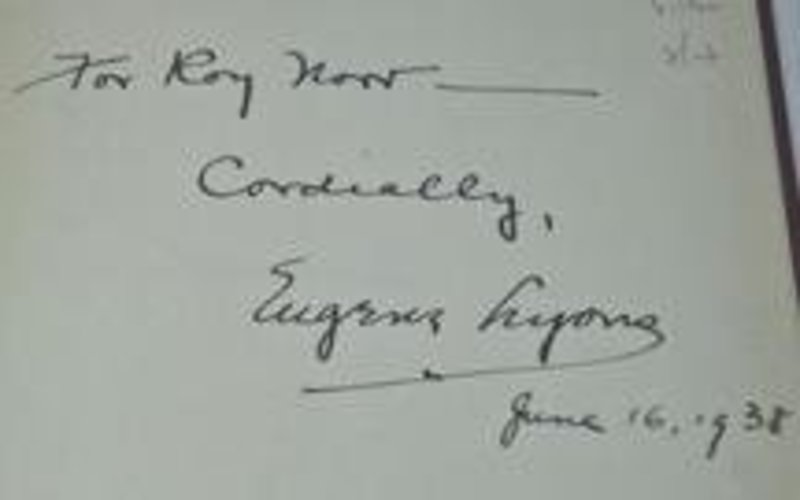 For Roy Norr
Cordially,
Eugene Lyons
June 16, 1938